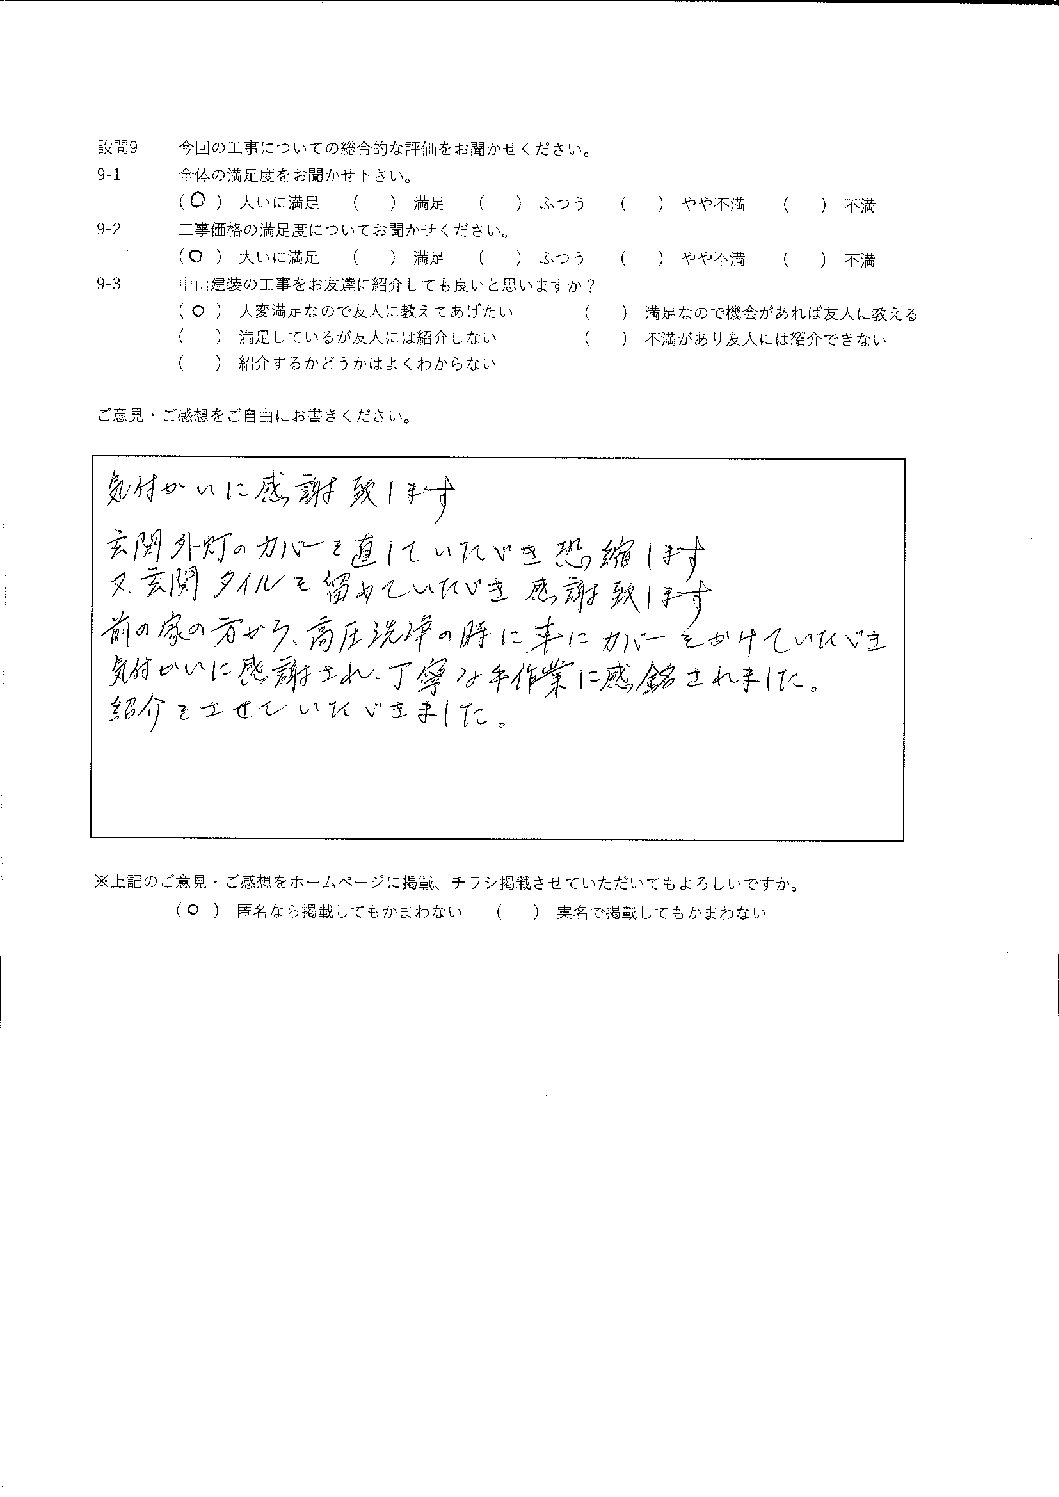 設問9 今回の工事についての総合的な評価をお聞かせください。
9-1 全体の満足度をお聞かせ下さい。
(○) 大いに満足 ( ) 満足 ( ) ふつう ( ) やや不満 ( ) 不満
9-2 工事価格の満足度についてお聞かせください。
(○) 大いに満足 ( ) 満足 ( ) ふつう ( ) やや不満 ( ) 不満
9-3 中山建装の工事をお友達に紹介しても良いと思いますか?
(○) 大変満足なので友人に教えてあげたい ( ) 満足なので機会があれば友人に教える
( ) 満足しているが友人には紹介しない ( ) 不満があり友人には紹介できない
( ) 紹介するかどうかはよくわからない
ご意見・ご感想をご自由にお書きください。
気付かいに感謝致します
玄関外灯のカバーを直していただき恐縮します
又、玄関タイルを留めていただき感謝致します
前の家の方から、高圧洗浄の時に車にカバーをかけていただき
気付かいに感謝され、丁寧な手作業に感銘されました。
紹介をさせていただきました。
※上記のご意見・ご感想をホームページに掲載、チラシ掲載させていただいてもよろしいですか。
(○) 匿名なら掲載してもかまわない ( ) 実名で掲載してもかまわない